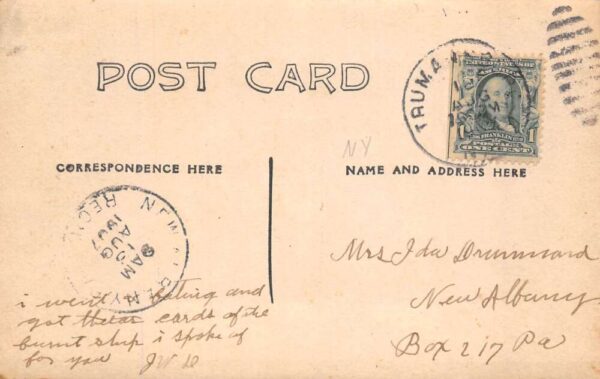 POST CARD
TRUMA
UNITED STATES OF
FRANKLIN
POSTAGE
ONE CENT
1
1
NY
CORRESPONDENCE HERE
NAME AND ADDRESS HERE
NEW
REC'D
AUG
10
AM
1907
Mrs Ida Drummard
New Albany
Box 217 Pa
i went and
got these cards of the
burnt ship i spoke of
for you